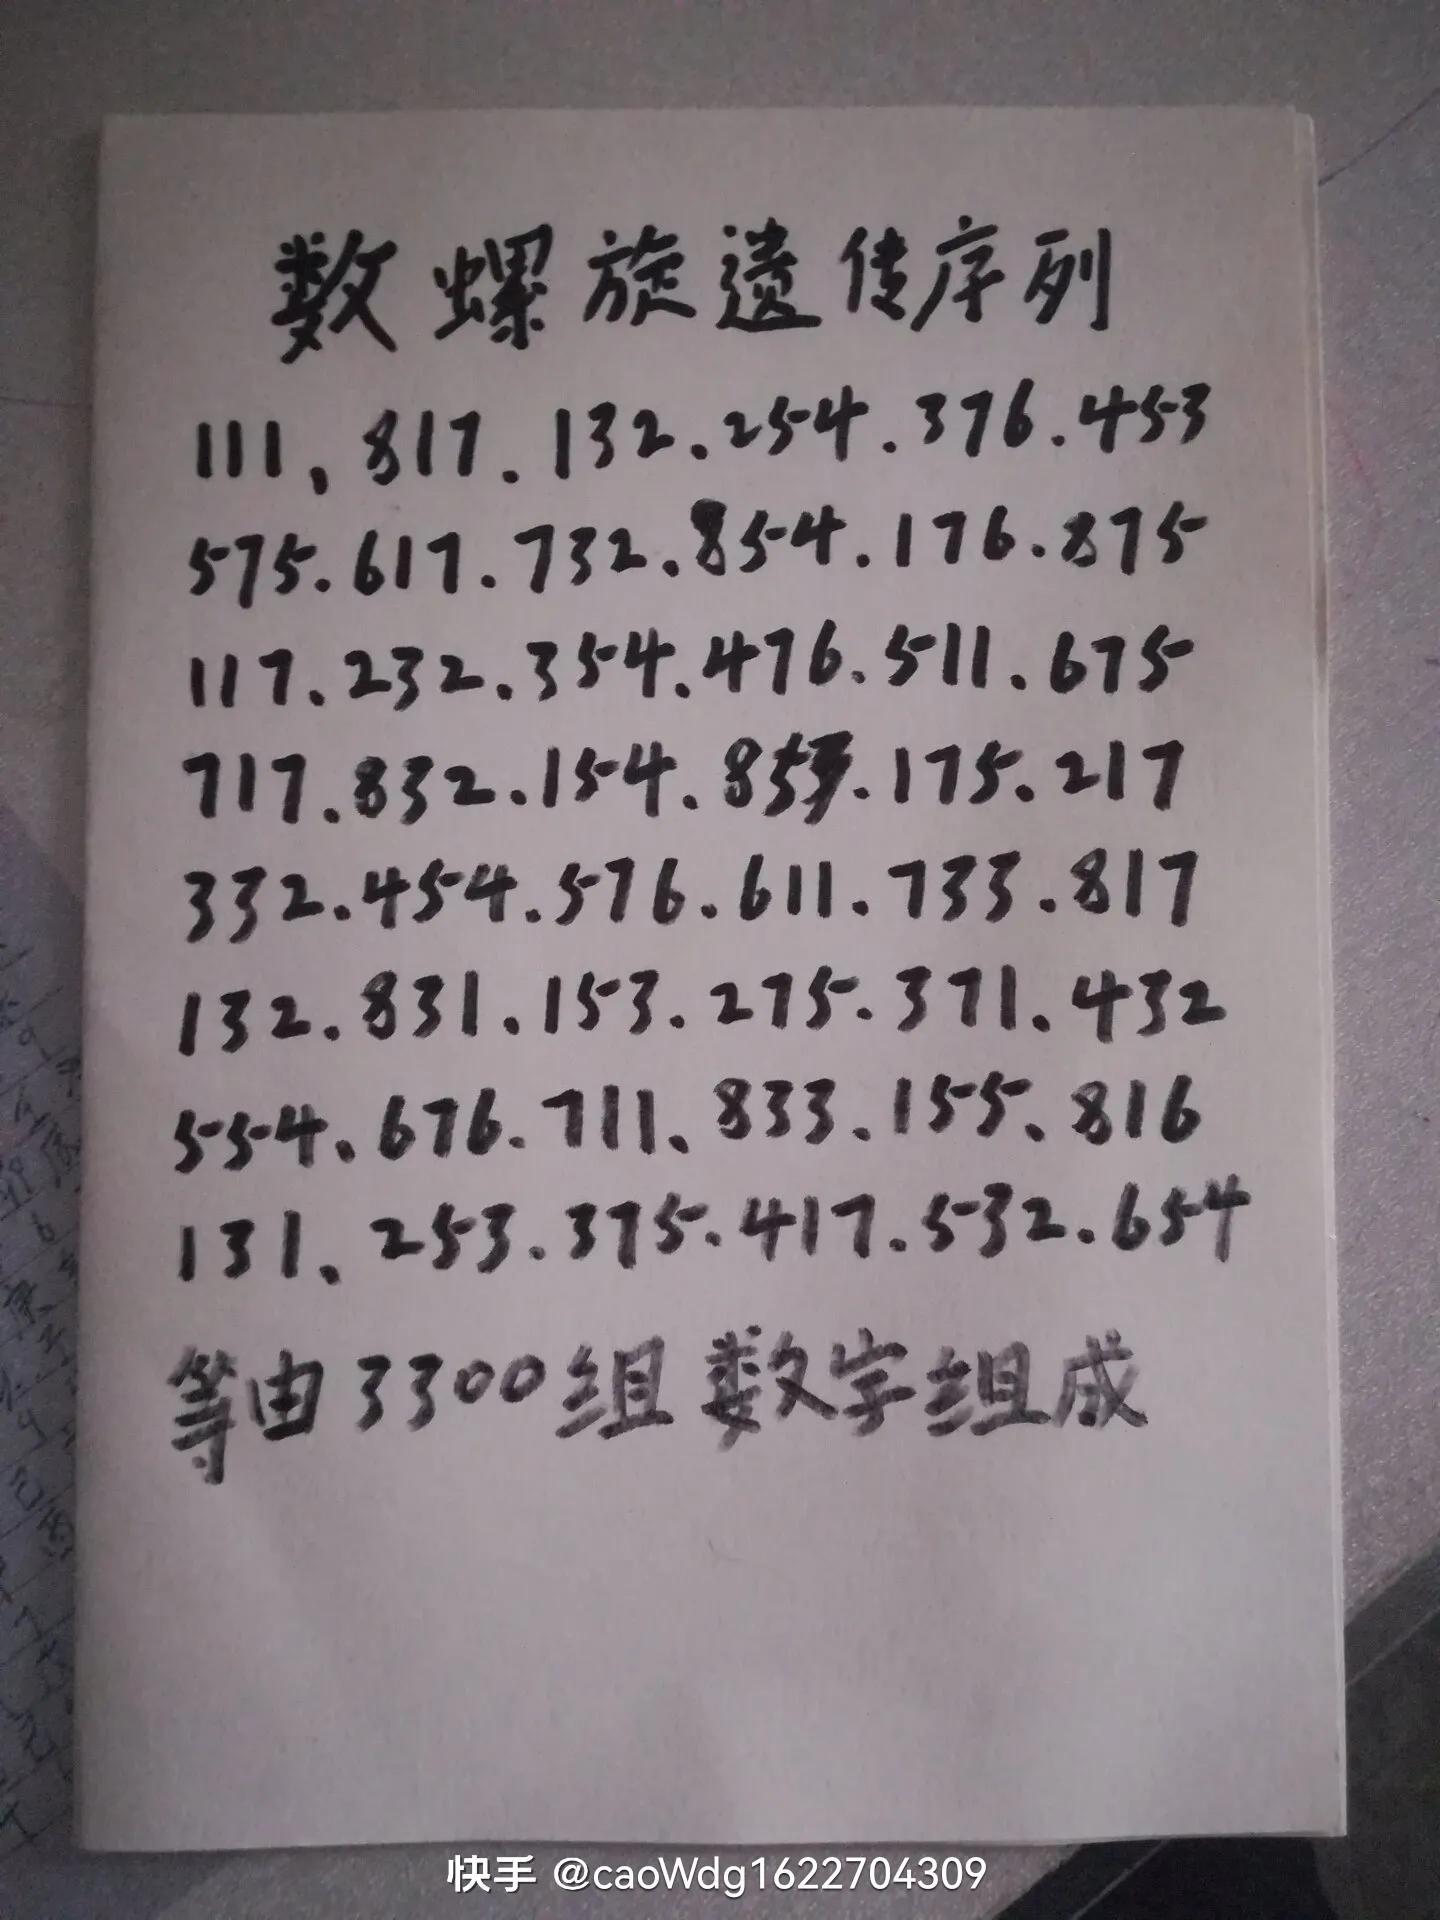 数螺旋遗传序列
111, 817.132.254.376.453
575.617.732.854.176.875
117.232.354.476.511.675
717.832.154.853.175.217
332.454.576.611.733.817
132.831.153.275.371.432
554.676.711.833.155.816
131.253.375.417.532.654
等由3300组数字组成
快手 @caoWdg1622704309